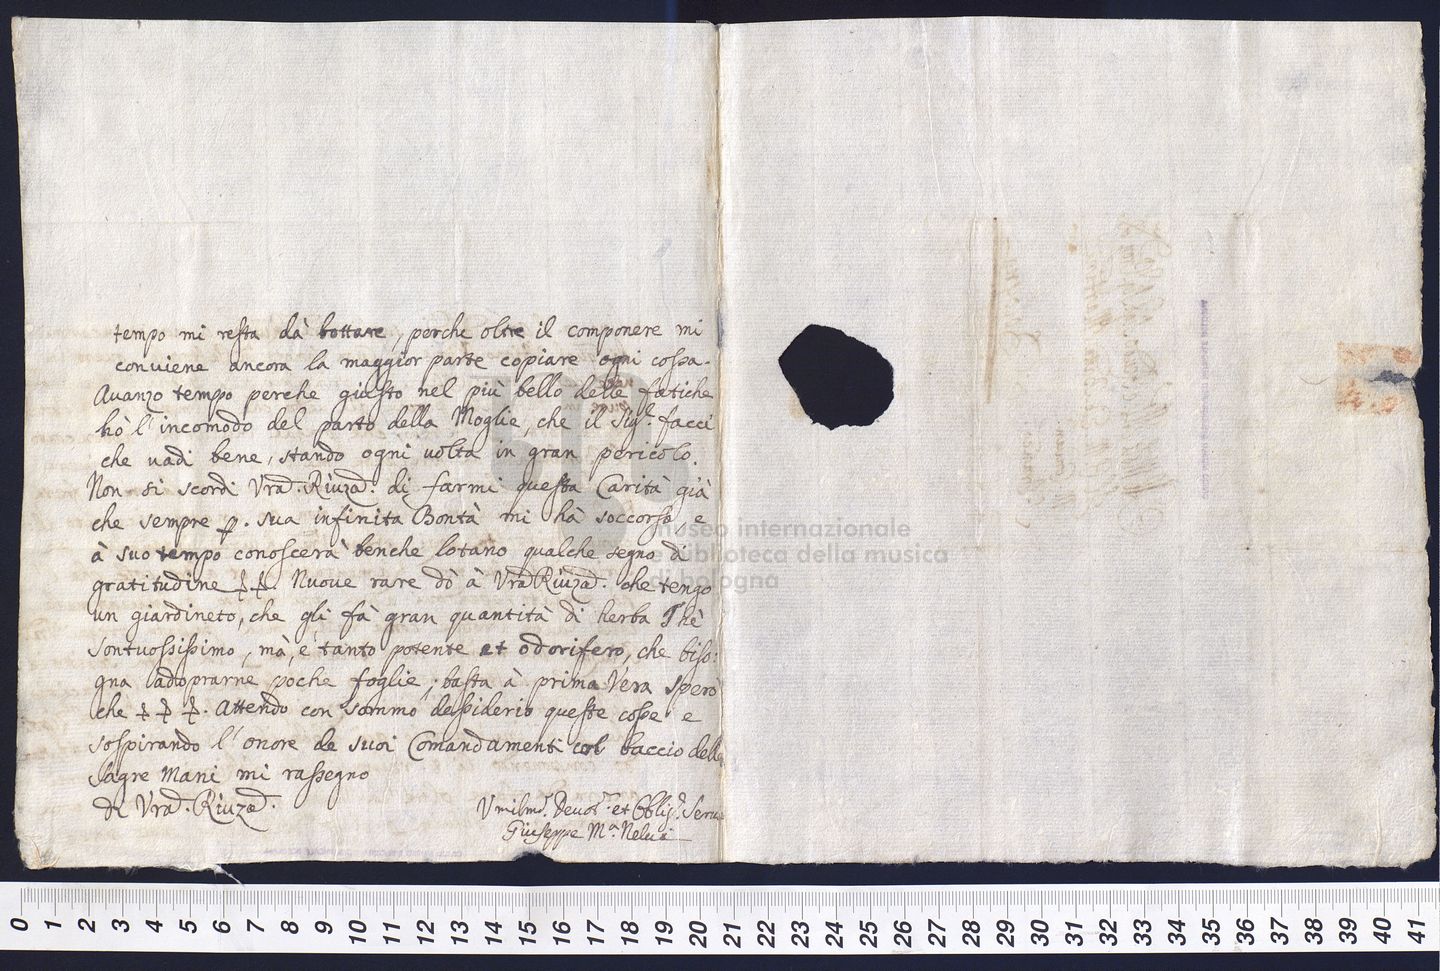 tempo mi resta dà bottare, perche oltre il componere mi
conviene ancora la maggior parte copiare ogni cossa.
Avanzo tempo perche giusto nel più bello delle fatiche
hò l'incomodo del parto della Moglie, che il Sig.r facci
che vadi bene, stando ogni volta in gran pericolo.
Non si scordi Vra d. Riuza d. di farmi questa Carità già
che sempre p. sua infinita Bontà mi hà soccorso e
à suo tempo conoscerà benche lotano qualche segno di
gratitudine Nuove rare dò à Vra d. Riuza d. che tengo
un giardineto, che gli fà gran quantità di herba Thè
sontuossissimo, mà, è tanto potente et odorifero, che biso:
gna ladoprarne poche foglie; basta à prima Vera sperò
che Attendo con sommo dessiderio queste cosse e
sosspirando l'onore de suoi Comandamenti col baccio delle
sagre Mani mi rassegno
di Vra d. Riuza d.
Umilm.o Devot.o et Oblig.o Serv
Giuseppe M.a Nelvi
museo internazionale
e biblioteca della musica
di bologna
0 1 2 3 4 5 6 7 8 9 10 11 12 13 14 15 16 17 18 19 20 21 22 23 24 25 26 27 28 29 30 31 32 33 34 35 36 37 38 39 40 41